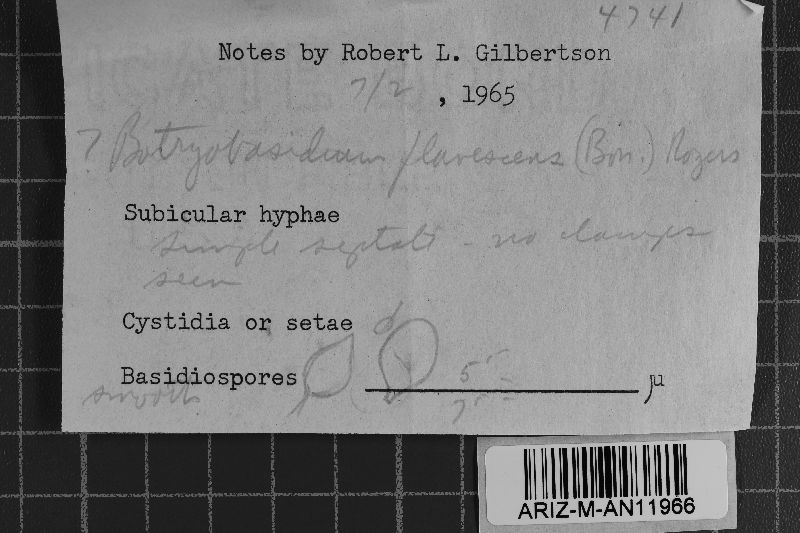 4741
Notes by Robert L. Gilbertson
7/2 , 1965
? Botryobasidium flavescens (Bon.) Rogers
Subicular hyphae
simple septate - no clamps
seen
Cystidia or setae
Basidiospores µ
smooth
ARIZ-M-AN11966